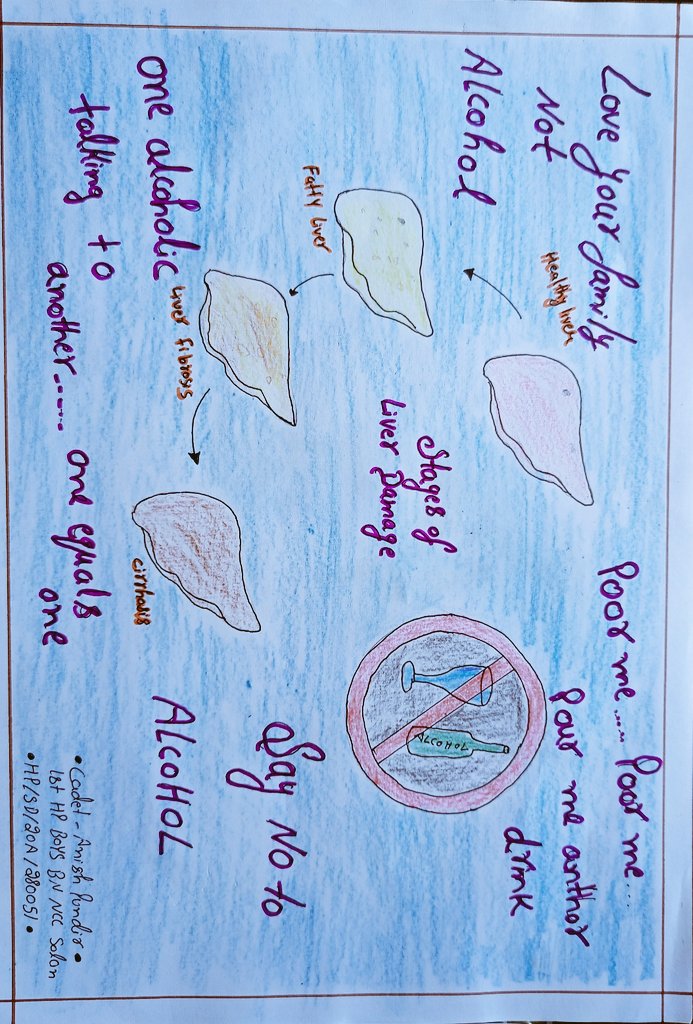 Love your family
Not
Alcohol
Poor me..... Poor me...
Pour me anither
drink
Healthy liver
Fatty Liver
Liver fibrosis
cirrhosis
Stages of
Liver Damage
ALCOHOL
one alcoholic
talking to
another...... one equals
one
Say No to
ALCOHOL
• Cadet - Anish Pundir •
1st HP BOYS BN NCC Solan
• HP/SD/20A/280051 •